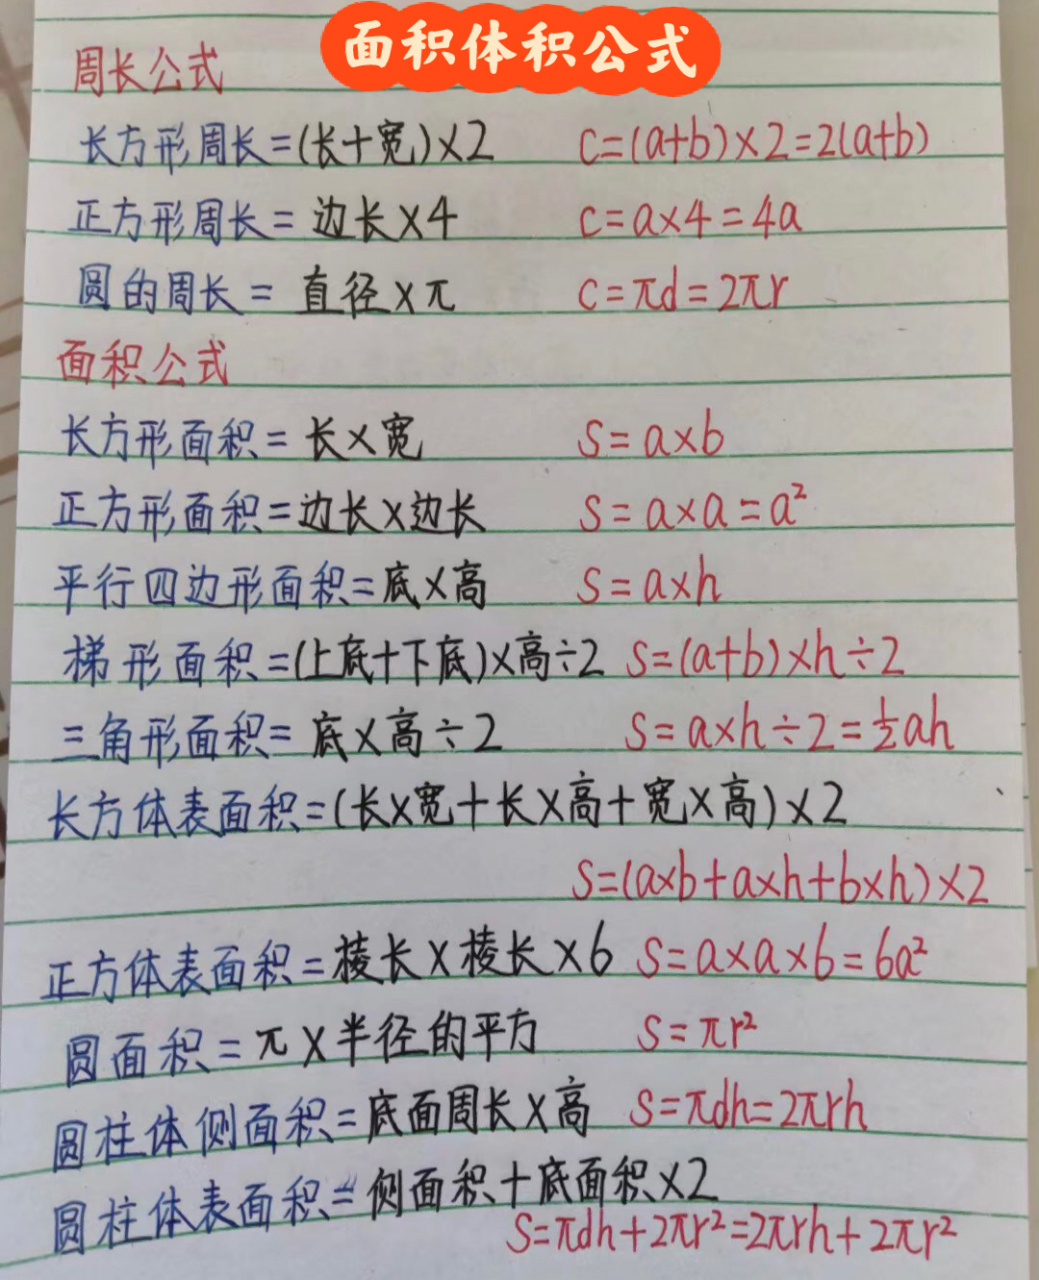 面积体积公式
周长公式
长方形周长=(长+宽)×2 C=(a+b)×2=2(a+b)
正方形周长=边长×4 C=a×4=4a
圆的周长=直径×π C=πd=2πr
面积公式
长方形面积=长×宽 S=a×b
正方形面积=边长×边长 S=a×a=a²
平行四边形面积=底×高 S=a×h
梯形面积=(上底+下底)×高÷2 S=(a+b)×h÷2
三角形面积=底×高÷2 S=a×h÷2=½ah
长方体表面积=(长×宽+长×高+宽×高)×2
S=(a×b+a×h+b×h)×2
正方体表面积=棱长×棱长×6 S=a×a×6=6a²
圆面积=π×半径的平方 S=πr²
圆柱体侧面积=底面周长×高 S=πdh=2πrh
圆柱体表面积=侧面积+底面积×2
S=πdh+2πr²=2πrh+2πr²